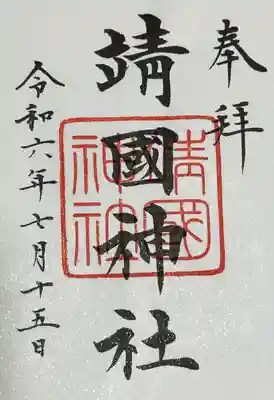 奉拝
靖國神社
靖國
神社
令和六年七月十五日